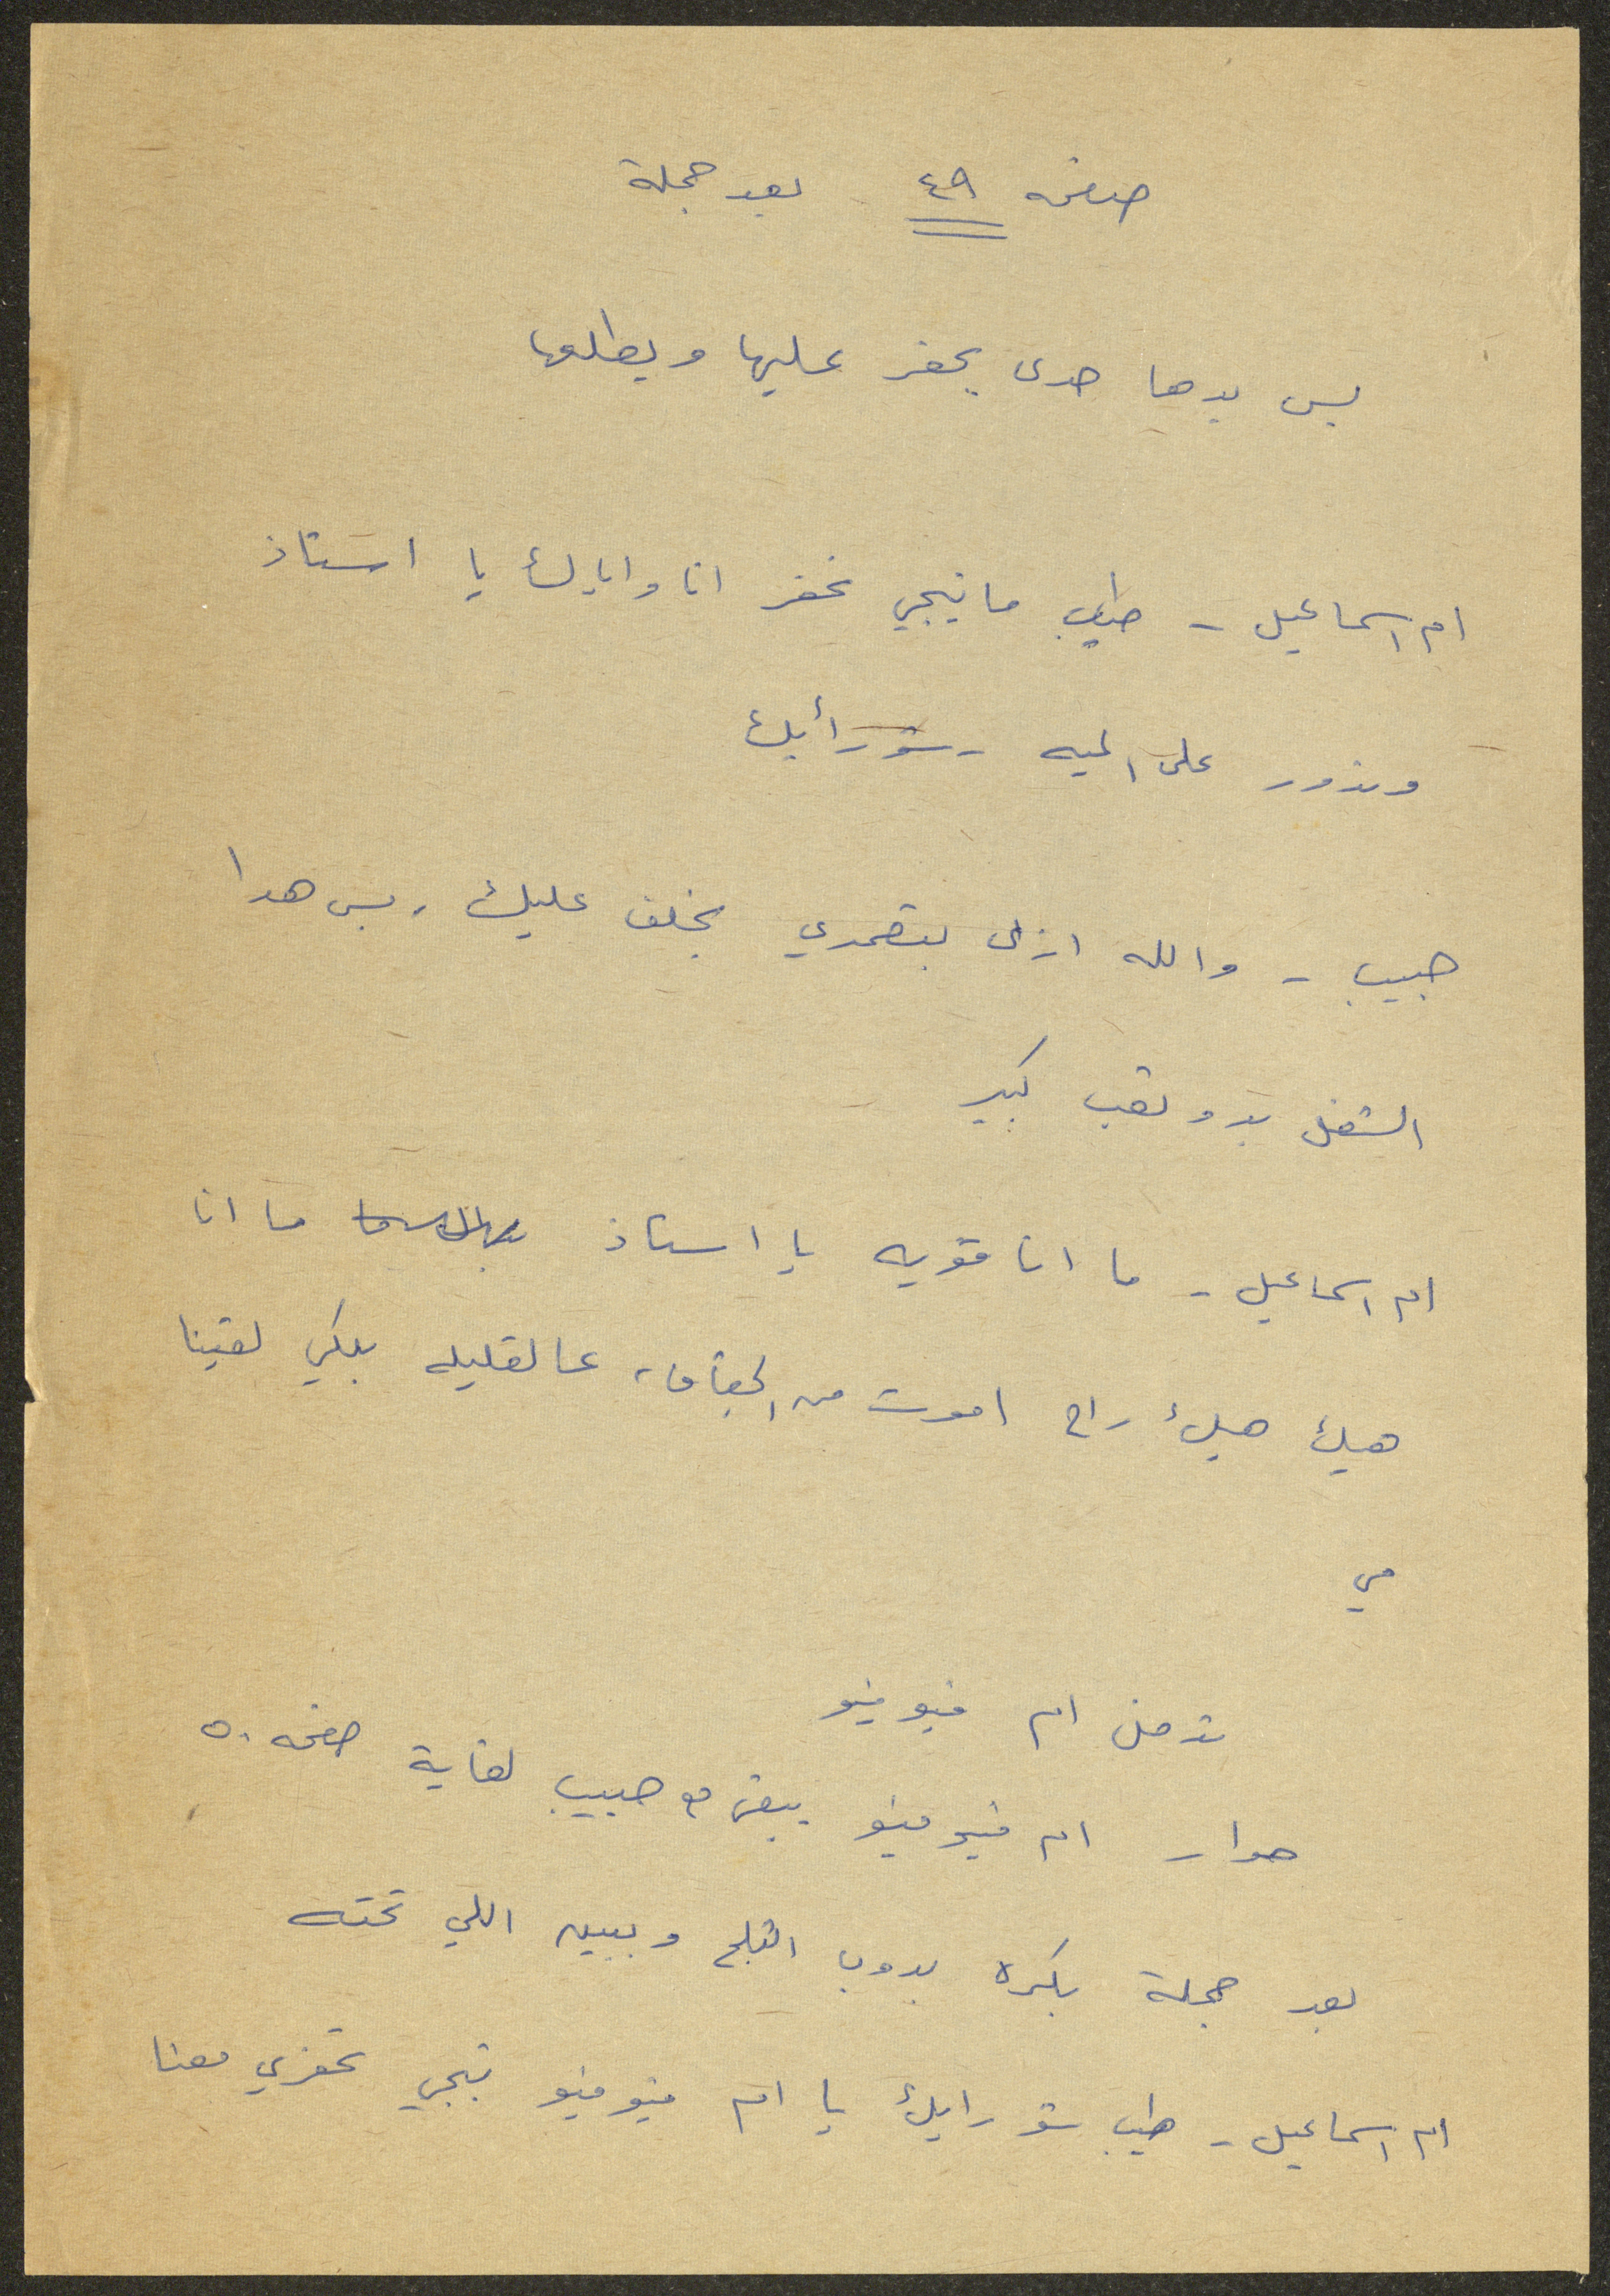 صفحه ٤٩ بعد جملة
بس بدها حدى يحفر عليها ويطلعها
ام اسماعيل - طيب ما تيجي نحفر انا واياك يا استاذ
وندور على الميه - شو رأيك
حبيب - والله ازا بتصمدي بخلف عليك، بس هدا
الشغل بدو تعب كبير
ام اسماعيل - ما انا قويه يا استاذ ما انا
هيك هيك راح اموت من الجفاف، عالقليله بلكي لقينا
مي
تدخل ام فيوفيو
حوار ام فيوفيو يبقى مع حبيب لغاية صفحه ٥٠
بعد جملة بكره بدوب التلج وببين اللي تحته
ام اسماعيل - طيب شو رايك يا ام فيوفيو تيجي تحفري معنا